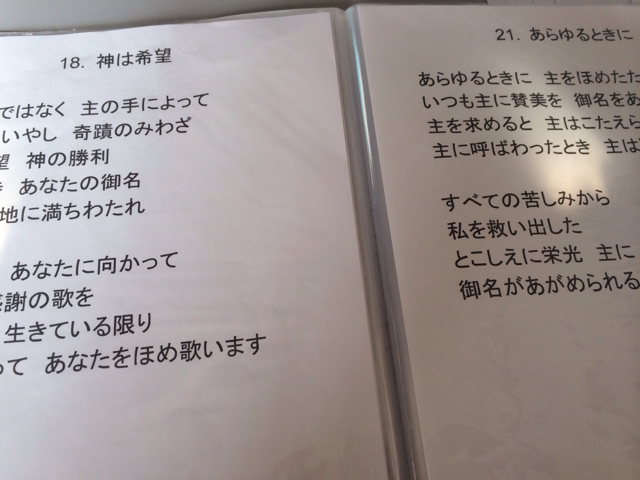 18. 神は希望
ではなく 主の手によって
いやし 奇蹟のみわざ
望 神の勝利
あなたの御名
地に満ちわたれ
あなたに向かって
感謝の歌を
生きている限り
って あなたをほめ歌います
21. あらゆるときに
あらゆるときに 主をほめたた
いつも主に賛美を 御名をあ
主を求めると 主はこたえら
主に呼ばわったとき 主は
すべての苦しみから
私を救い出した
とこしえに栄光 主に
御名があがめられる